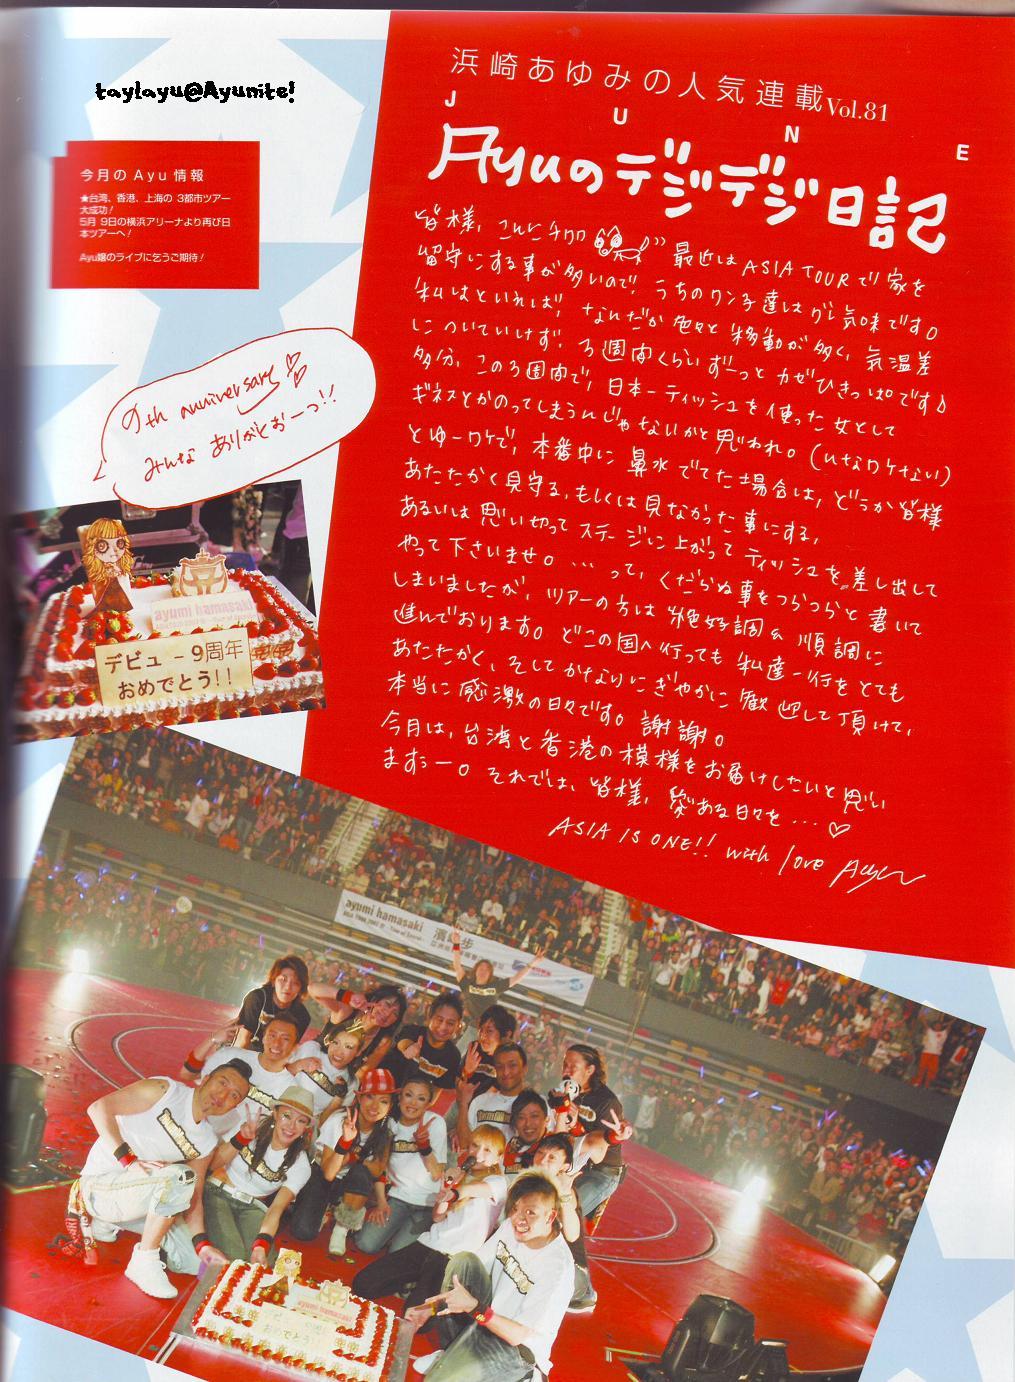 taylayu@Ayunite!
浜崎あゆみの人気連載Vol.81
JUNE
Ayuのデジデジ日記
今月のAyu情報
★台湾、香港、上海の3都市ツアー
大成功!
5月9日の横浜アリーナより再び日
本ツアーへ!
Ayu嬢のライブに乞うご期待!
皆様、こんにチワワ 最近はASIA TOURで家を
留守にする事が多いので、うちのワン子達はグレ気味です。
私はといえば、なんだか色々と移動が多く、気温差
についていけず、3週間くらいずーっとカゼひきっぱです♪
多分、この3週間で、日本一ティッシュを使った女として
ギネスとかのってしまうんじゃないかと思われ。(んなワケない)
とゆーワケで、本番中に鼻水でてた場合は、どうか皆様
あたたかく見守る、もしくは見なかった事にする、
あるいは思い切ってステージに上がってティッシュを差し出して
やって下さいませ。...って、くだらぬ事をつらつらと書いて
しまいましたが、ツアーの方は絶好調&順調に
進んでおります。どこの国へ行っても私達一行をとても
あたたかく、そしてかなりにぎやかに歓迎して頂けて、
本当に感激の日々です。謝謝。
今月は、台湾と香港の模様をお届けしたいと思い
ますー。それでは、皆様、笑ある日々を...♡
ASIA IS ONE!! with love Ayu
9th anniversary
みんなありがとおーっ!!
ayumi hamasaki
デビュー9周年
おめでとう!!
ayumi hamasaki
ayumi hamasaki
おめでとう!!